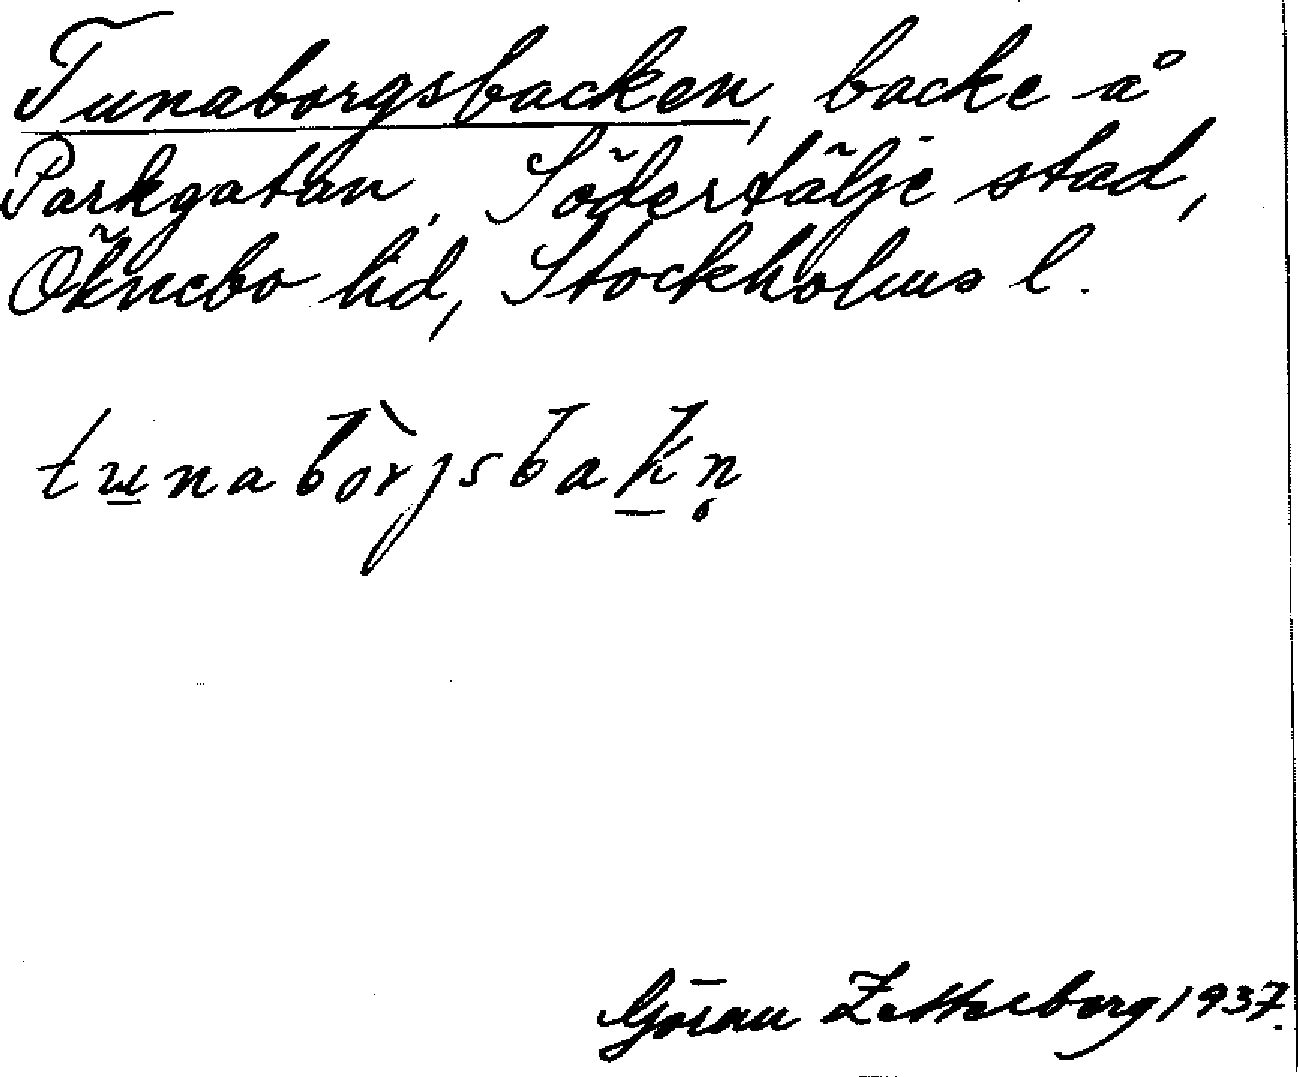 Tunaborgsbacken, backe å
Parkgatan, Södertälje stad,
Öknebo hd, Stockholms l.
tunabòrjsbakn̥
Göran Zetterberg 1937.